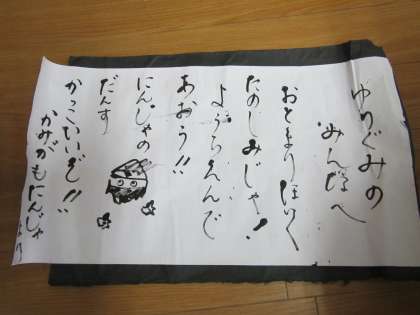 ゆりぐみの
みんなへ
おとまりほいく
たのしみじゃ!
ようちえんで
あおう!!
にんじゃの
だんす
かっこいいぞ!!
かみがもにんじゃ